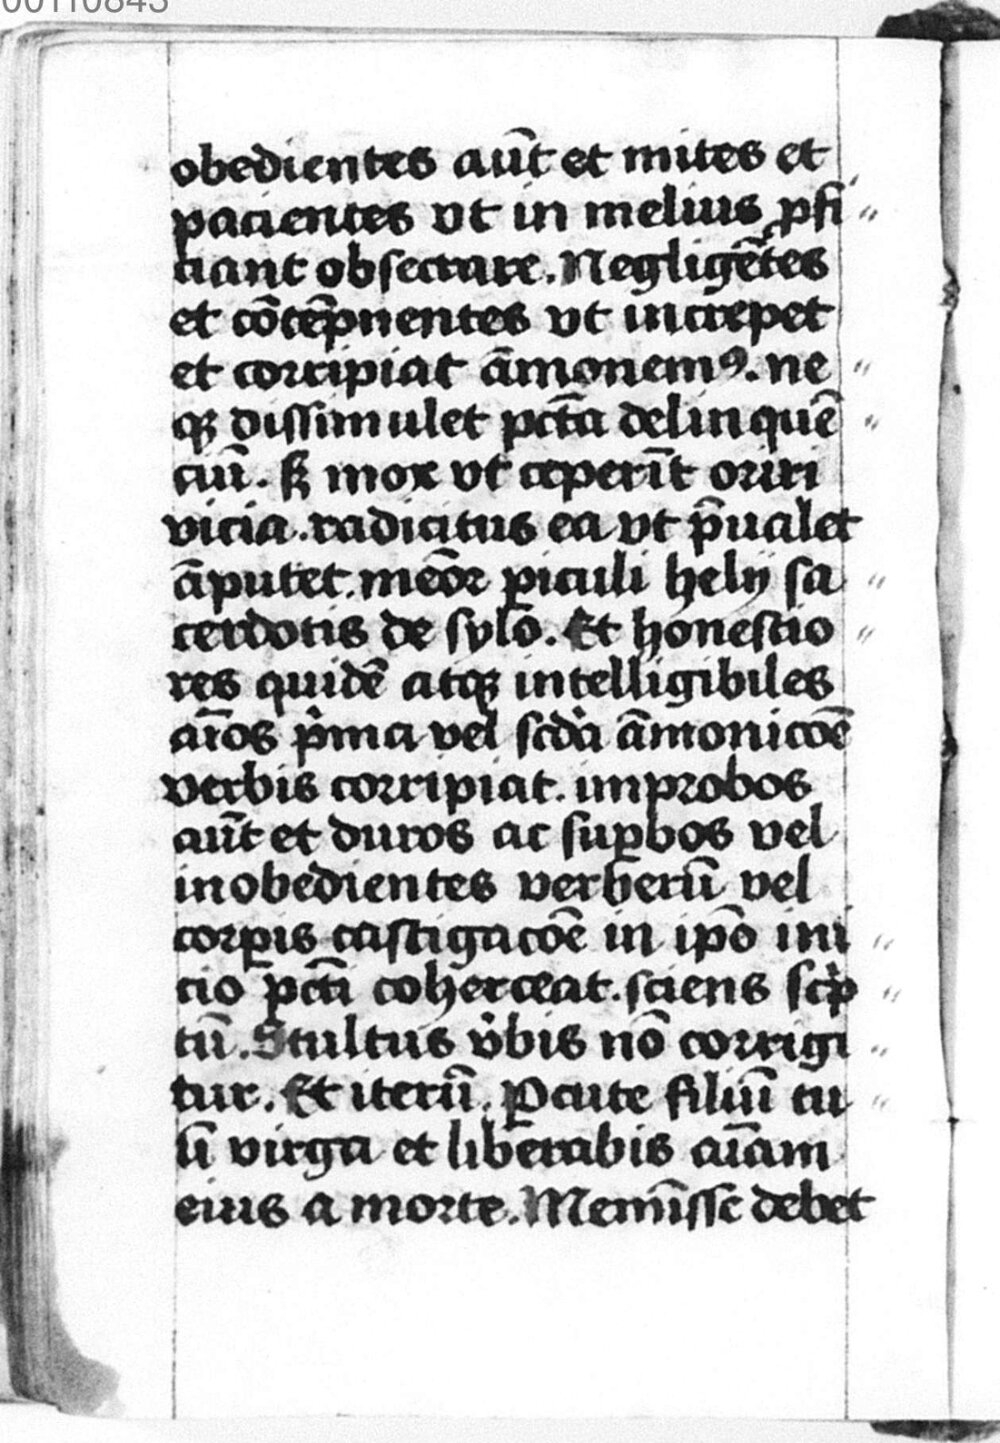 00110843
obedientes aūt et mites et
pacientes vt in melius ꝓfi〃
ciant obsecrare. Negligētes
et cōtēpnentes vt increpet
et corripiat āmonemꝰ. ne〃
qꝫ dissimulet pctā delinquē〃
ciū. sꝫ mox vt ceperīt oriri
vicia. radicitus ea vt p̄ualet
āputet. memōr ꝑiculi helij sa〃
cerdotis de sylo. Et honestio〃
res quidē atqꝫ intelligibiles
aīos pͥma vel scdͣa āmonicōē
verbis corripiat. improbos
aūt et duros ac suꝑbos vel
inobedientes verberū vel
corꝑis castigacōē in ipō ini〃
cio pcti coherceat. sciens scͥp〃
tū. Stultus v̓bis nō corrigi〃
tur. Et iterū. Ꝑcute filiū tu〃
ū virga et liberabis aīam
eius a morte. Memīsse debet